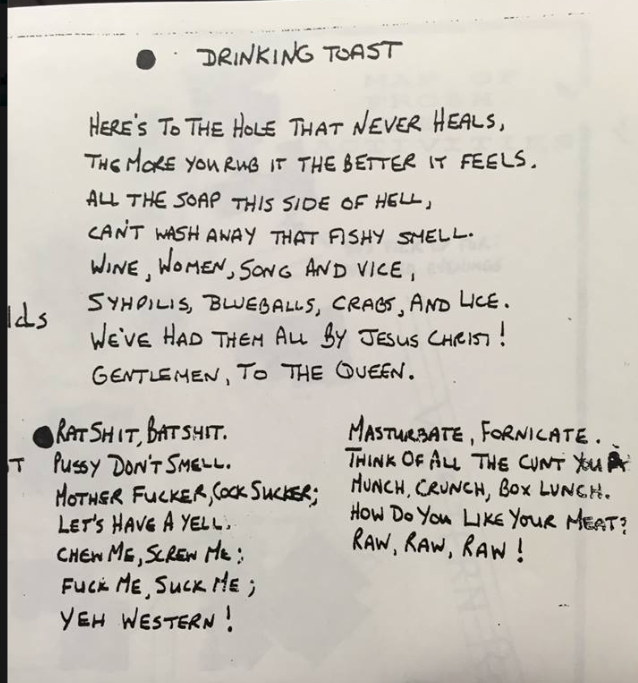 DRINKING TOAST
HERE'S TO THE HOLE THAT NEVER HEALS,
THE MORE YOU RUB IT THE BETTER IT FEELS.
ALL THE SOAP THIS SIDE OF HELL,
CAN'T WASH AWAY THAT FISHY SMELL.
WINE, WOMEN, SONG AND VICE,
SYHPILIS, BLUEBALLS, CRABS, AND LICE.
lds
WE'VE HAD THEM ALL BY JESUS CHRIST!
GENTLEMEN, TO THE QUEEN.
RATSHIT, BATSHIT.
T PUSSY DON'T SMELL.
MOTHER FUCKER, COCK SUCKER;
LET'S HAVE A YELL.
CHEW ME, SCREW ME;
FUCK ME, SUCK ME;
YEH WESTERN!
MASTURBATE, FORNICATE.
THINK OF ALL THE CUNT YOU
MUNCH, CRUNCH, BOX LUNCH.
HOW DO YOU LIKE YOUR MEAT?
RAW, RAW, RAW!